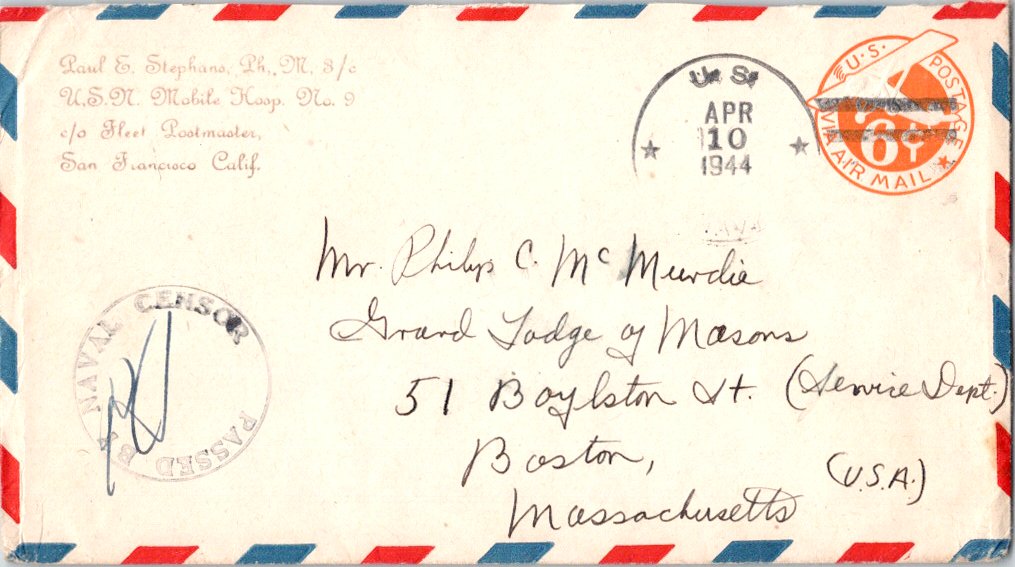 Paul E. Stephans, Ph. M. 3/c
U.S.N. Mobile Hosp. No. 9
c/o Fleet Postmaster,
San Francisco Calif.
U. S.
APR
10
1944
U.S. POSTAGE
6¢
VIA AIR MAIL
Mr. Philip C. McMurdie
Grand Lodge of Masons
51 Boylston St. (Service Dept.)
Boston,
(U.S.A.)
Massachusetts
PASSED BY NAVAL CENSOR